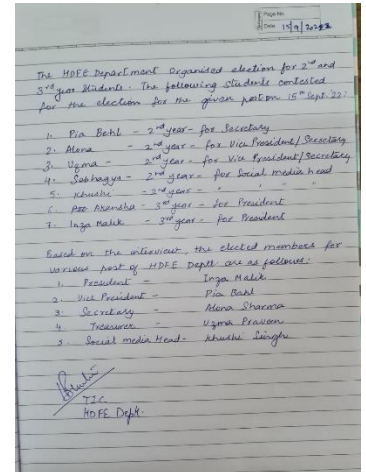 Page No.
Date 15/9/2022
The HDFE Department Organised election for 2nd and
3rd year Students. The following students contested
for the election for the given position 15th Sept. '22:
1. Pia Bahl - 2nd year - for Secretary
2. Alona - 2nd year - for Vice President/Secretary
3. Uzma - 2nd year - for Vice President/Secretary
4. Sobhagya - 2nd year - for Social media head
5. Khushi - 2nd year - " " "
6. Akansha - 3rd year - for President
7. Inza Malik - 3rd year - for President
Based on the interview, the elected members for
various post of HDFE Deptt. are as follows:
1. President - Inza Malik
2. Vice President - Pia Bahl
3. Secretary - Alona Sharma
4. Treasurer - Uzma Praveen
5. Social media Head - Khushi Singh
TIC
HDFE Deptt.